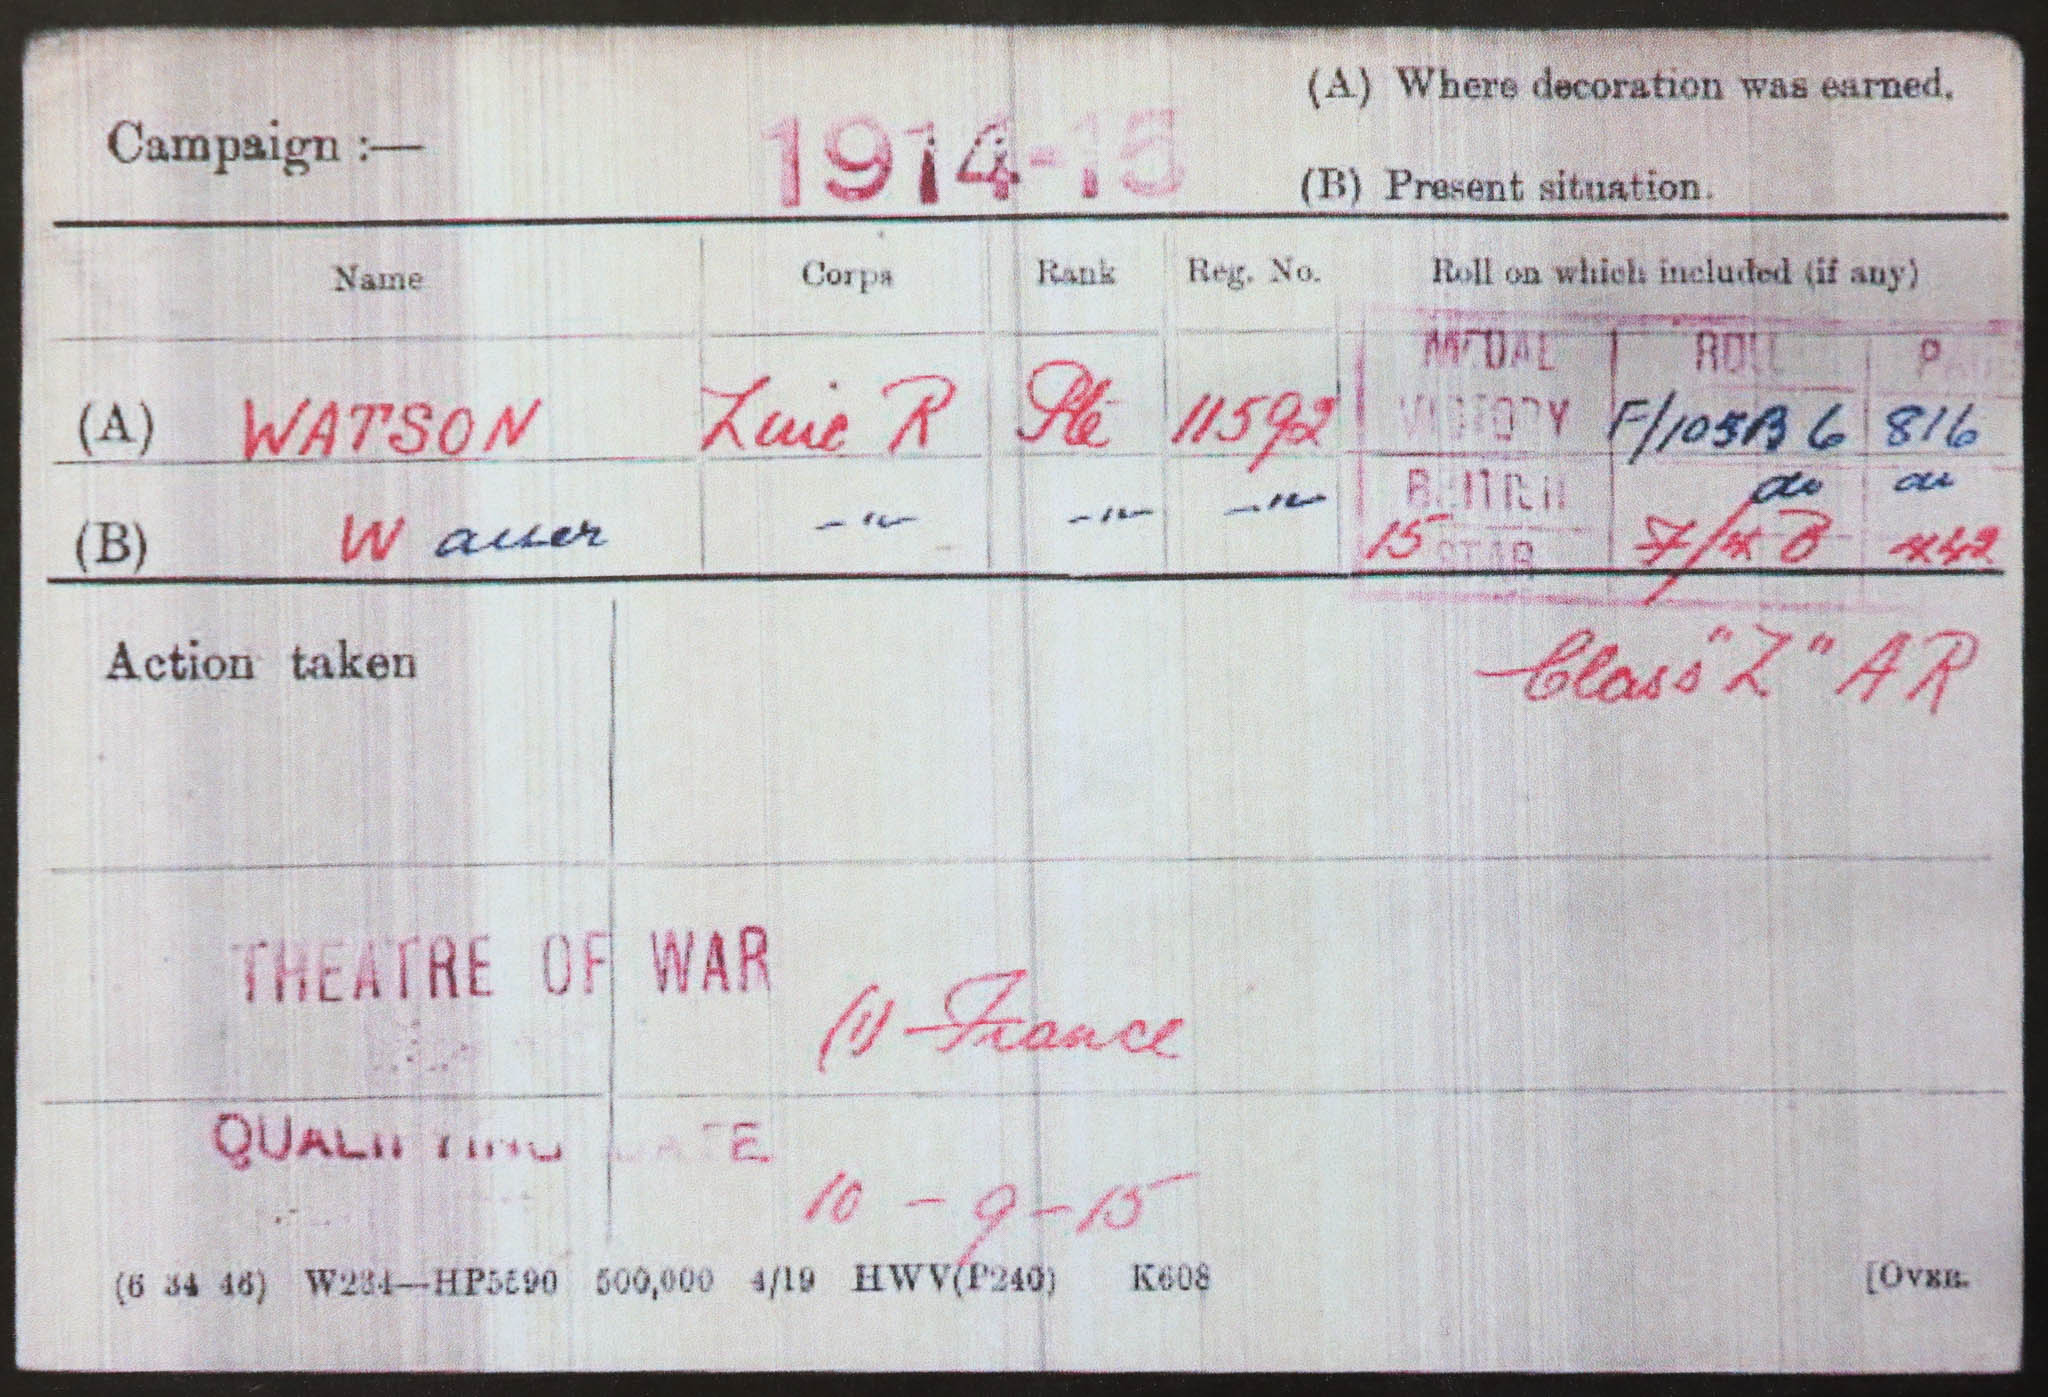 Campaign :— 1914-15 (A) Where decoration was earned.
(B) Present situation.
Name Corps Rank Reg. No. Roll on which included (if any)
MEDAL ROLL PAGE
(A) WATSON Linc R Pte 11592 VICTORY F/105B6 816
(B) W alter -"- -"- -"- BRITISH do do
15 STAR
Action taken Class "Z" A R
THEATRE OF WAR (1) France
QUALIFYING DATE 10 - 9 - 15
(6 34 46) W234—HP5590 500,000 4/19 HWV(P240) K608 [OVER.